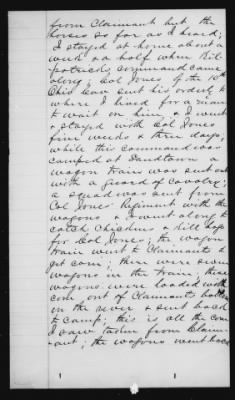 from Claimant but the
horses so far as I heard;
I stayed at home about a
week & a half when Kil-
patricks command came
along; Col Jones of the 10th
Ohio Cav sent his orderly to
where I lived for a man
to wait on him, & I went
& stayed with Col Jones
five weeks & three days;
while this command was
camped at Sandtown a
wagon train was sent out
with a guard of Cavalry;
a squad was sent from
Col Jones' Regiment with the
wagons & I went along to
catch chickens & kill hogs
for Col Jones; the wagon
train went to Claimants to
get corn; there were seven
wagons in the train; these
wagons were loaded with
corn out of Claimants bottom
on the river & sent back
to camp; this is all the corn
I saw taken from Claim-
ant; the wagons went back